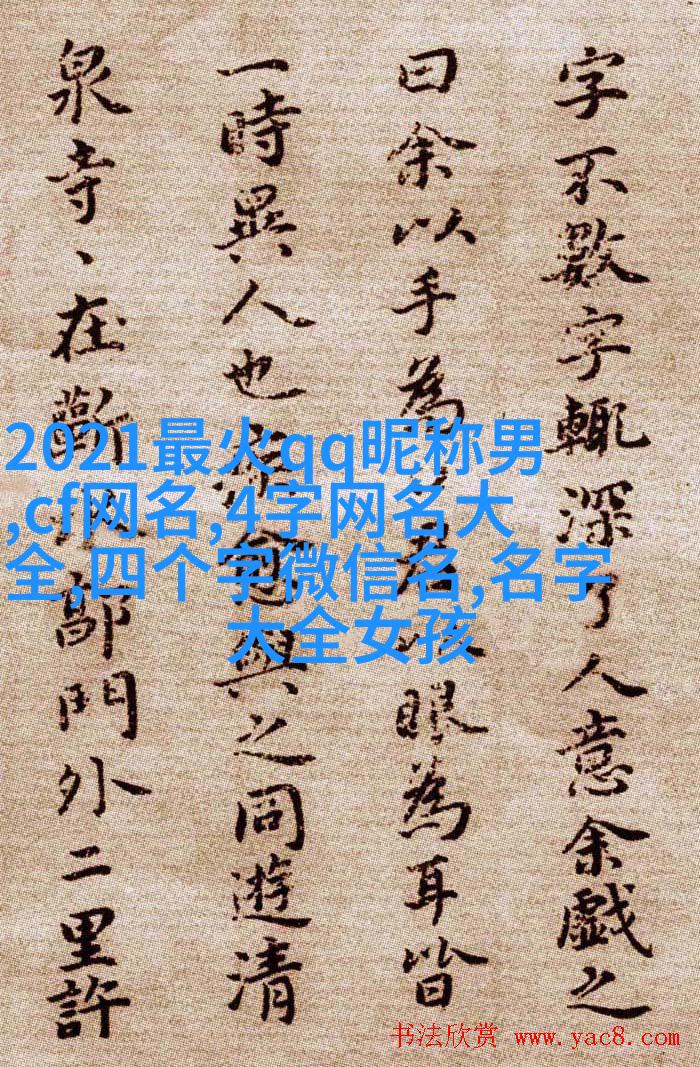 字不數字輒深了人意余戲之
曰余以手為口君以眼為耳皆
一時異人也疾愈與之同遊清
泉寺、在蘄水郭門外二里許
2021最火qq昵称男
,cf网名,4字网名大
全,四个字微信名,名字
大全女孩
书法欣赏 www.yac8.com